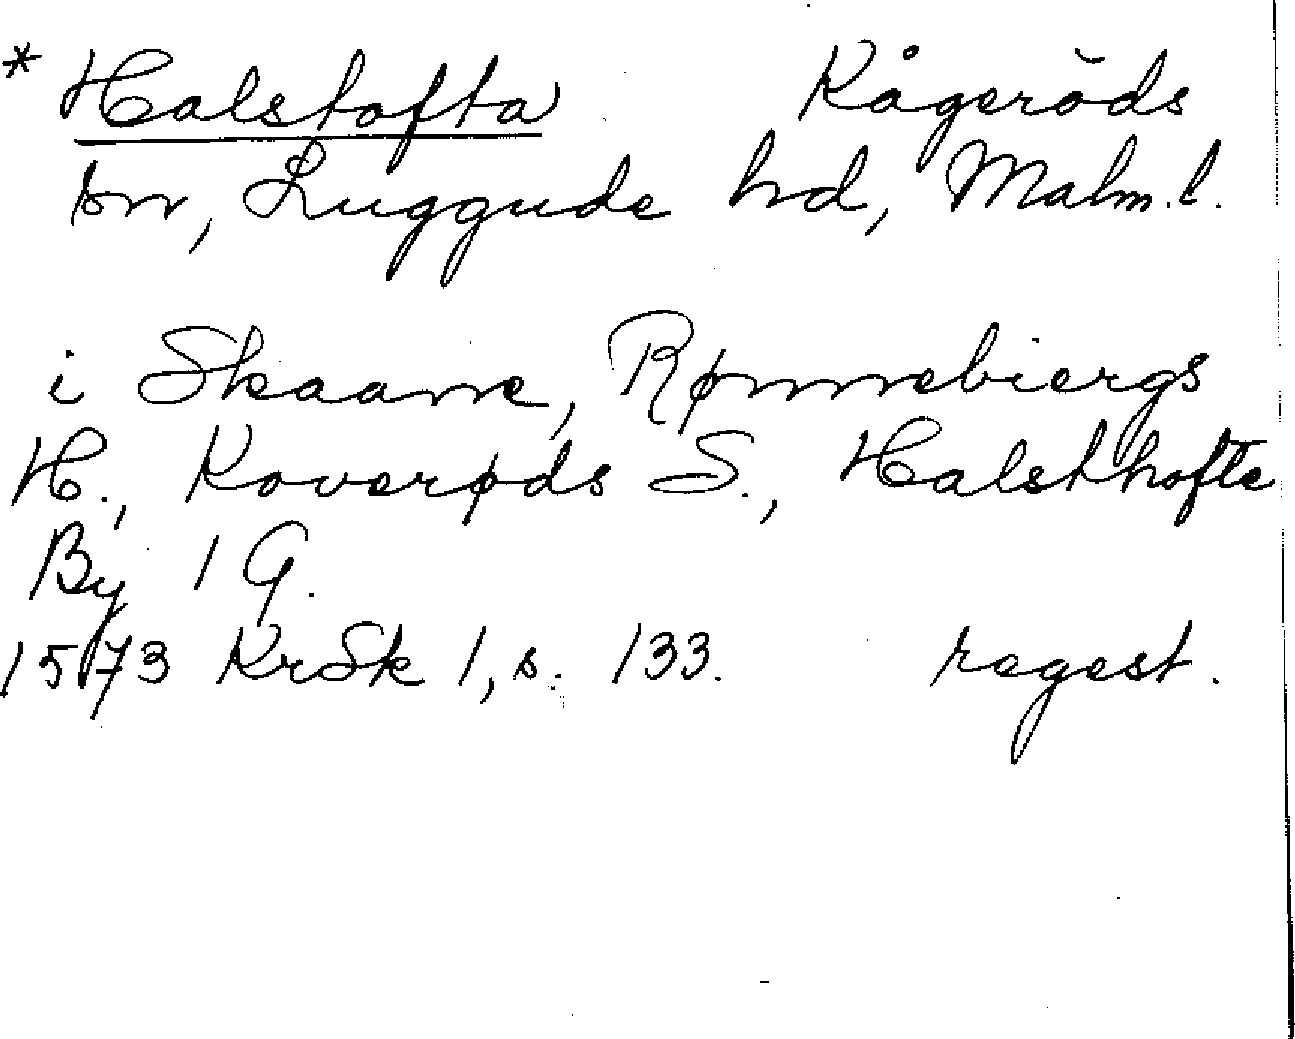 * Halstofta Kågeröds
sn, Luggude hd, Malm. l.
i Skaane, Rønnebiergs
H., Koverøds S., Halsthofte
By 1 G.
1573 KrSk 1, s. 133. regest.